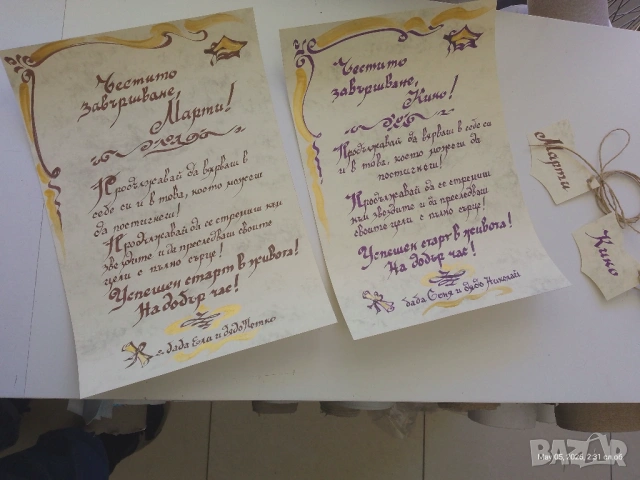 Честито
завършване,
Марти!
Продължавай да вярваш в
себе си и в това, което можеш
да постигнеш!
Продължавай да се стремиш към
звездите и да преследваш своите
цели с пълно сърце!
Успешен старт в живота!
На добър час!
баба Ели и дядо
Честито
завършване,
Кино!
Продължавай да вярваш в себе си
и в това, което можеш да
постигнеш!
Продължавай да се стремиш
към звездите и да преследваш
своите цели с пълно сърце!
Успешен старт в живота!
На добър час!
баба Сеня и дядо Николай
Марти
Кино
May 05, 2025, 2:31 сл.об.
BAZAR